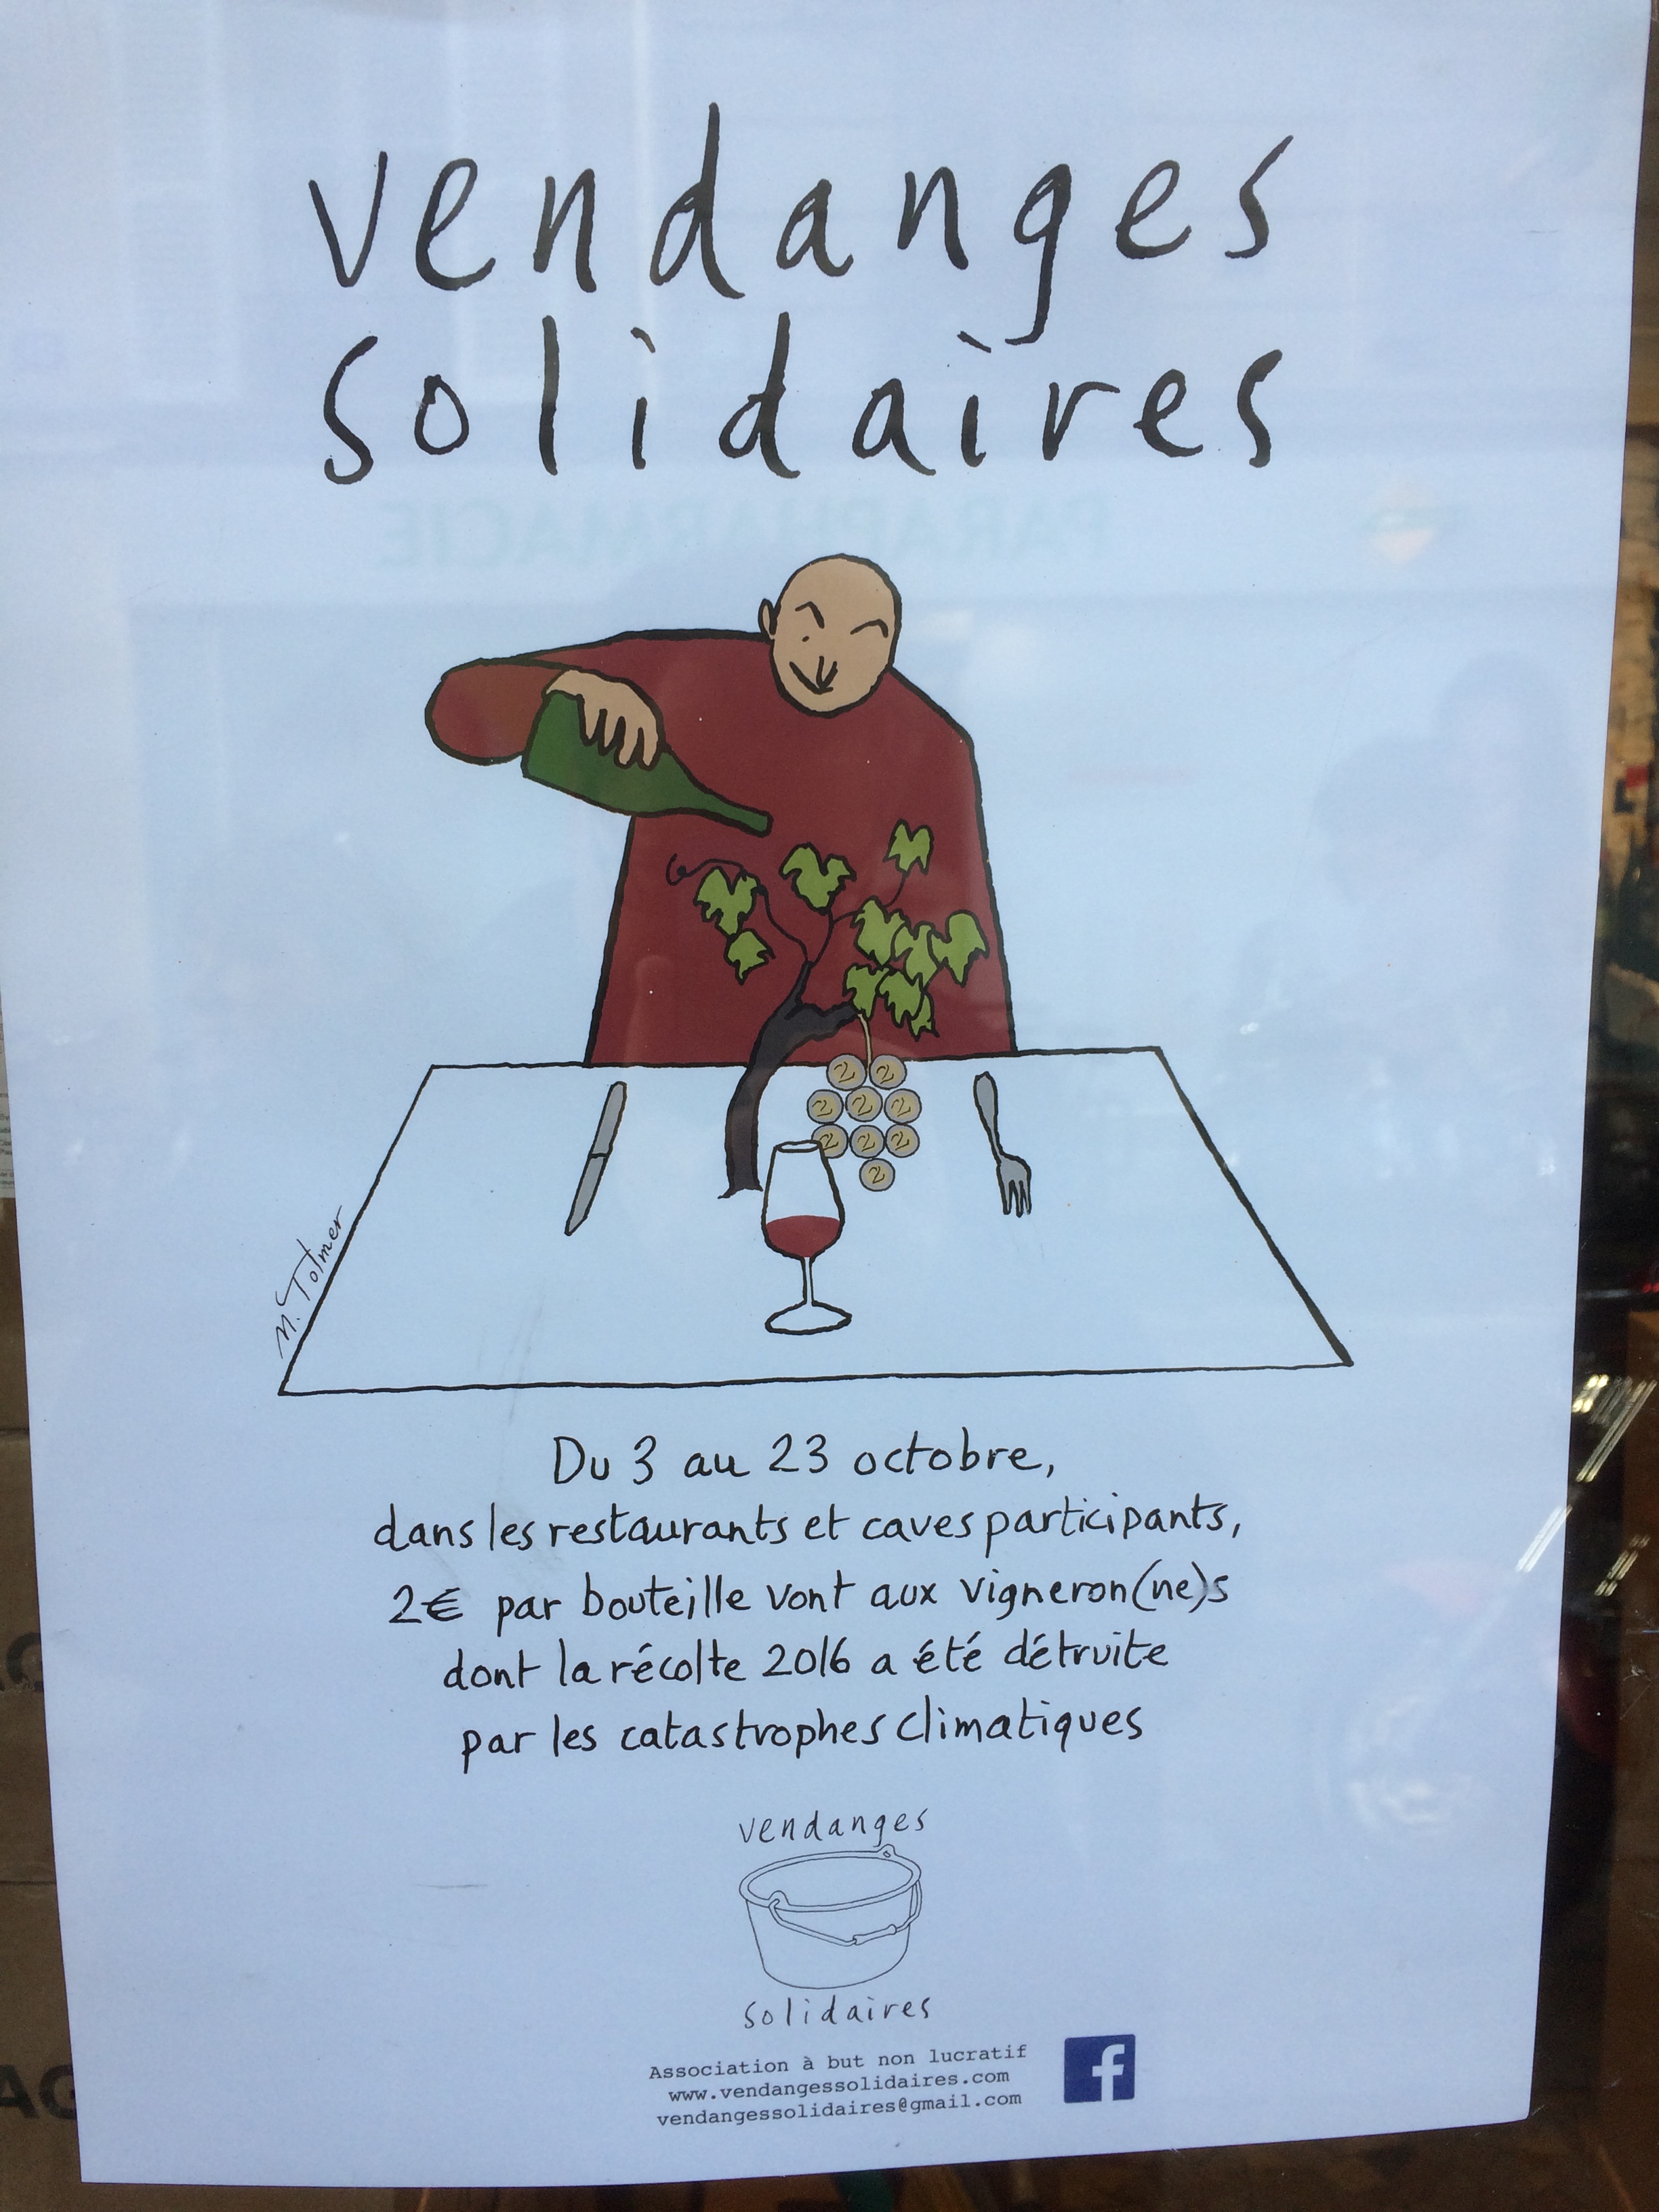 vendanges
solidaires
PARAPHARMACIE
2 2
2 2 2
2 2 2
2
M. Tolmer
Du 3 au 23 octobre,
dans les restaurants et caves participants,
2€ par bouteille vont aux vigneron(ne)s
dont la récolte 2016 a été détruite
par les catastrophes climatiques
vendanges
solidaires
Association à but non lucratif
www.vendangessolidaires.com
vendangessolidaires@gmail.com
f
AG